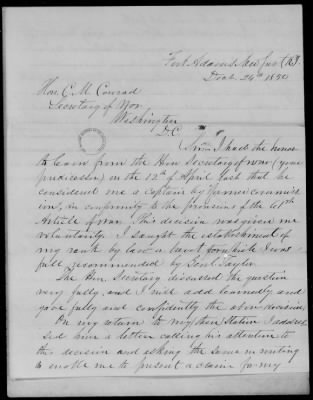 Fort Adams New
Decb. 24th 1850
Hon. C. M. Conrad
Secretary of War
Washington
D.C.
Sir: I had the honor
to learn from the Hon Secretary of war (your
predecessor) on the 12th of April last that he
considered me a captain by former commiss
ion, in conformity to the provisions of the 61st
Article of war. This decision was given me
voluntarily. I sought the establishment of
my rank by law a for while I was
full recommended by Genl. Taylor.
The Hon. Secretary discussed the question
very fully, and I will add learnedly and
gave fully and confidently the above decision.
On my return to my then station I address
sed him a letter calling his attention to
this decision and asking the same in writing
to enable me to present a claim for my